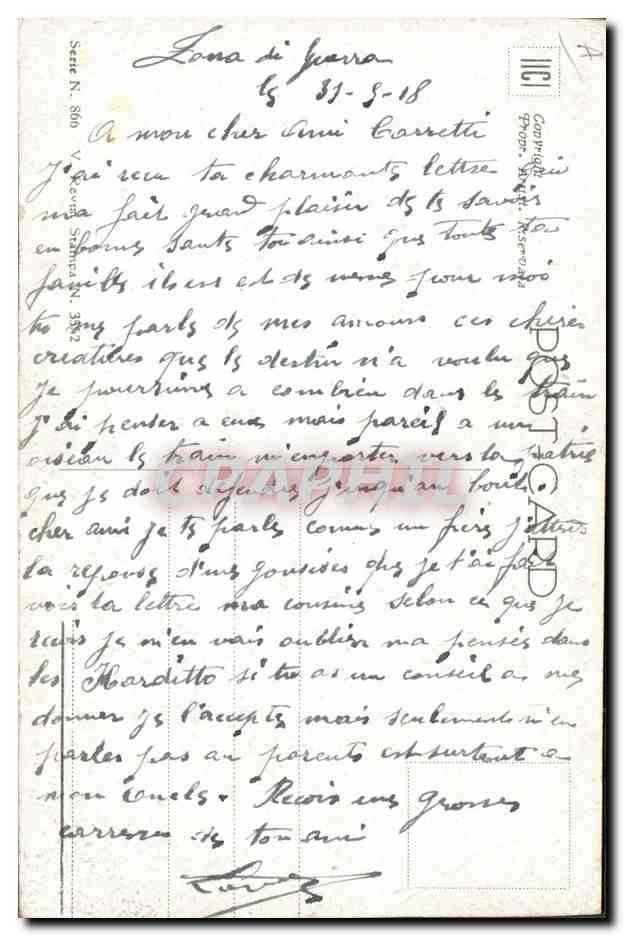 Zona di Guerra
le 31-5-18
A mon cher ami Carretti
J'ai recu ta charmante lettre qui
ma fait grand plaisir de te savoir
en bonne sante toi ainsi que toute ta
famille ilsent est de meme pour moi
tu me parle de mes amours ces chères
creatures que le destin n'a voulu que
je poursuive a combien dans le train
j'ai penser a eux mais pareil a un
oiseau le train m'emporter vers la patrie
que je dois defendre jusqu'au bout.
cher ami je te parle comme un frere j'attends
la reponse d'une que je t'ai fait
voir la lettre ma cousine selon ce que je
recois je m'en vais oublier ma pensée dans
les Harditto si tu as un conseil a me
donner je l'accepte mais seulement n'en
parles pas au parents est surtout a
mon oncle. Recois une grosses
carresse de ton ami
Serie N. 866
V. Revis. Stampa N. 3532
IICI
Copyright
Propr. Artist. Riservata
POST CARD
CPAPHIL